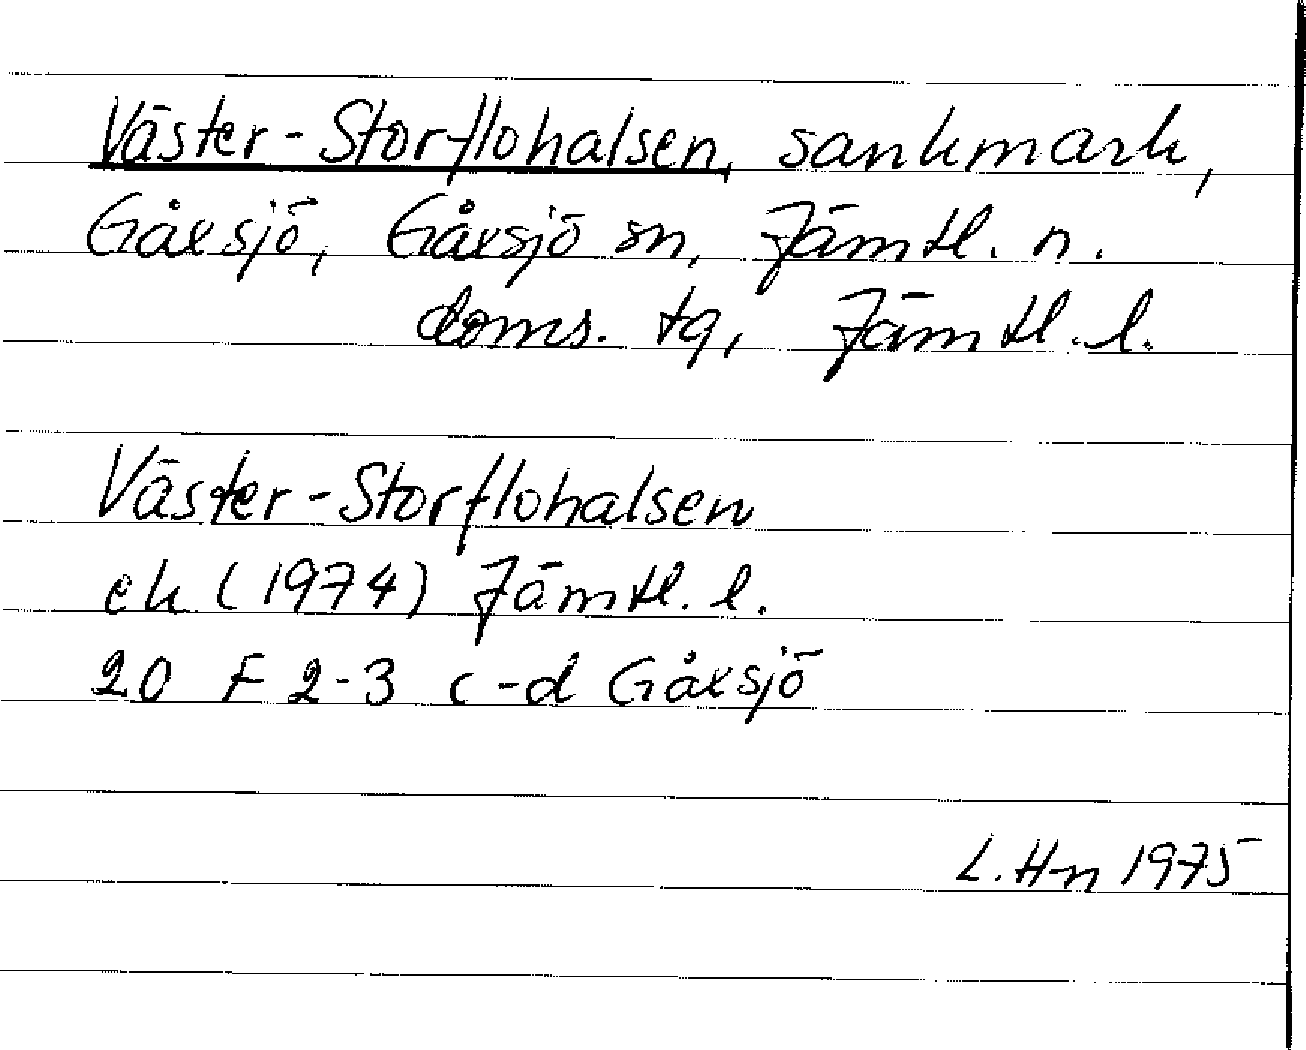 Väster-Storflohalsen, sankmark,
Gåxsjö, Gåxsjö sn, Jämtl. n.
doms. tg, Jämtl. l.
Väster-Storflohalsen
ek (1974) Jämtl. l.
20 F 2-3 c-d Gåxsjö
L. Hn 1975